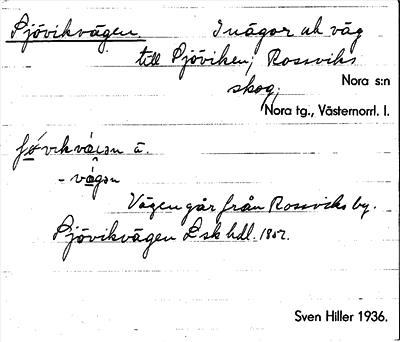 Pjövikvägen. Inägor uh väg
till Pjöviken, Rossviks
skog.
Nora s:n
Nora tg., Västernorrl. l.
vikvägən ä.
- vägən
Vägen går från Rossviks by.
Pjövikvägen Lsk hdl. 1857.
Sven Hiller 1936.